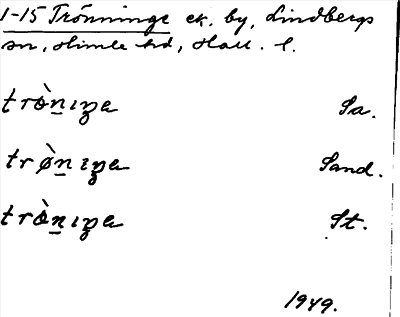 1-15 Trönninge ek. by, Lindbergs
sn, Himle hd, Hall. l.
trö̀n̲ıŋe Sa.
trø̀n̲ıŋe Sand.
trö̀n̲ıŋe St.
1949.